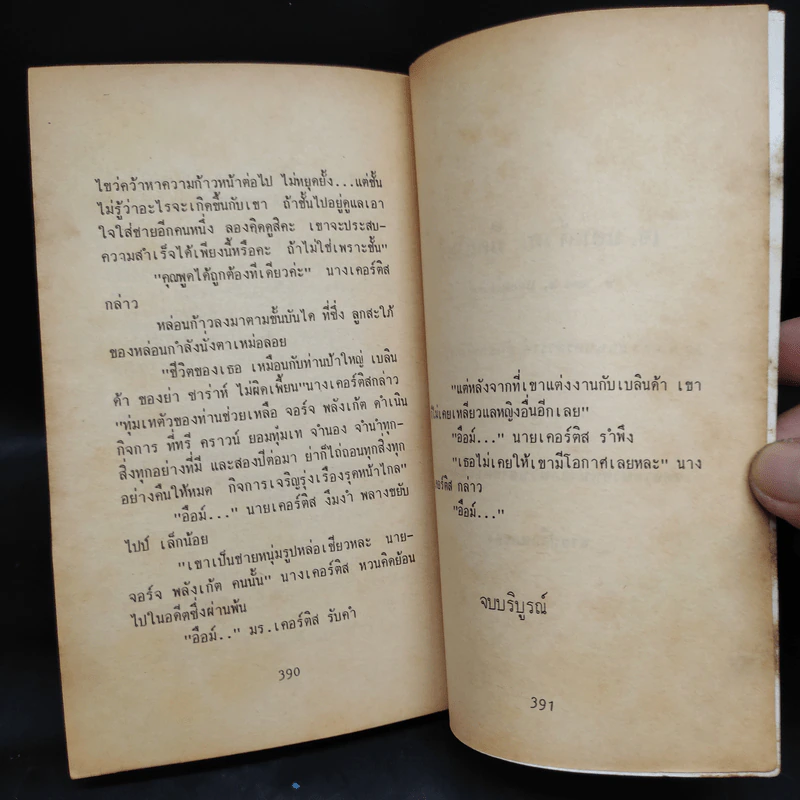 ไขว่คว้าหาความก้าวหน้าต่อไป ไม่หยุดยั้ง...แต่ชั้น
ไม่รู้ว่าอะไรจะเกิดขึ้นกับเขา ถ้าชั้นไปอยู่ดูแลเอา
ใจใส่ชายอีกคนหนึ่ง ลองคิดดูสิคะ เขาจะประสบ-
ความสำเร็จได้เพียงนี้หรือคะ ถ้าไม่ใช่เพราะชั้น"
"คุณพูดได้ถูกต้องทีเดียวค่ะ" นางเคอร์ติส
กล่าว
หล่อนก้าวลงมาตามขั้นบันได ที่ซึ่ง ลูกสะใภ้
ของหล่อนกำลังนั่งตาเหม่อลอย
"ชีวิตของเธอ เหมือนกับท่านป้าใหญ่ เบลิน
ด้า ของย่า ซาร่าห์ ไม่ผิดเพี้ยน"นางเคอร์ติสกล่าว
"ทุ่มเทตัวของท่านช่วยเหลือ จอร์จ พลังเก้ต ดำเนิน
กิจการ ที่ทรี คราวน์ ยอมทุ่มเท จำนอง จำนำทุก-
สิ่งทุกอย่างที่มี และสองปีต่อมา ย่าก็ไถ่ถอนทุกสิ่งทุก
อย่างคืนให้หมด กิจการเจริญรุ่งเรืองรุดหน้าไกล"
"อืมม์..." นายเคอร์ติส งึมงำ พลางขยับ
ไปป์ เล็กน้อย
"เขาเป็นชายหนุ่มรูปหล่อเชียวหละ นาย-
จอร์จ พลังเก้ต คนนั้น" นางเคอร์ติส หวนคิดย้อน
ไปในอดีตซึ่งผ่านพ้น
"อืมม์.." มร.เคอร์ติส รับคำ
390
"แต่หลังจากที่เขาแต่งงานกับเบลินด้า เขา
ไม่เคยเหลียวแลหญิงอื่นอีกเลย"
"อืมม์..." นายเคอร์ติส รำพึง
"เธอไม่เคยให้เขามีโอกาศเลยหละ" นาง
เคอร์ติส กล่าว
"อืมม์..."
จบบริบูรณ์
391